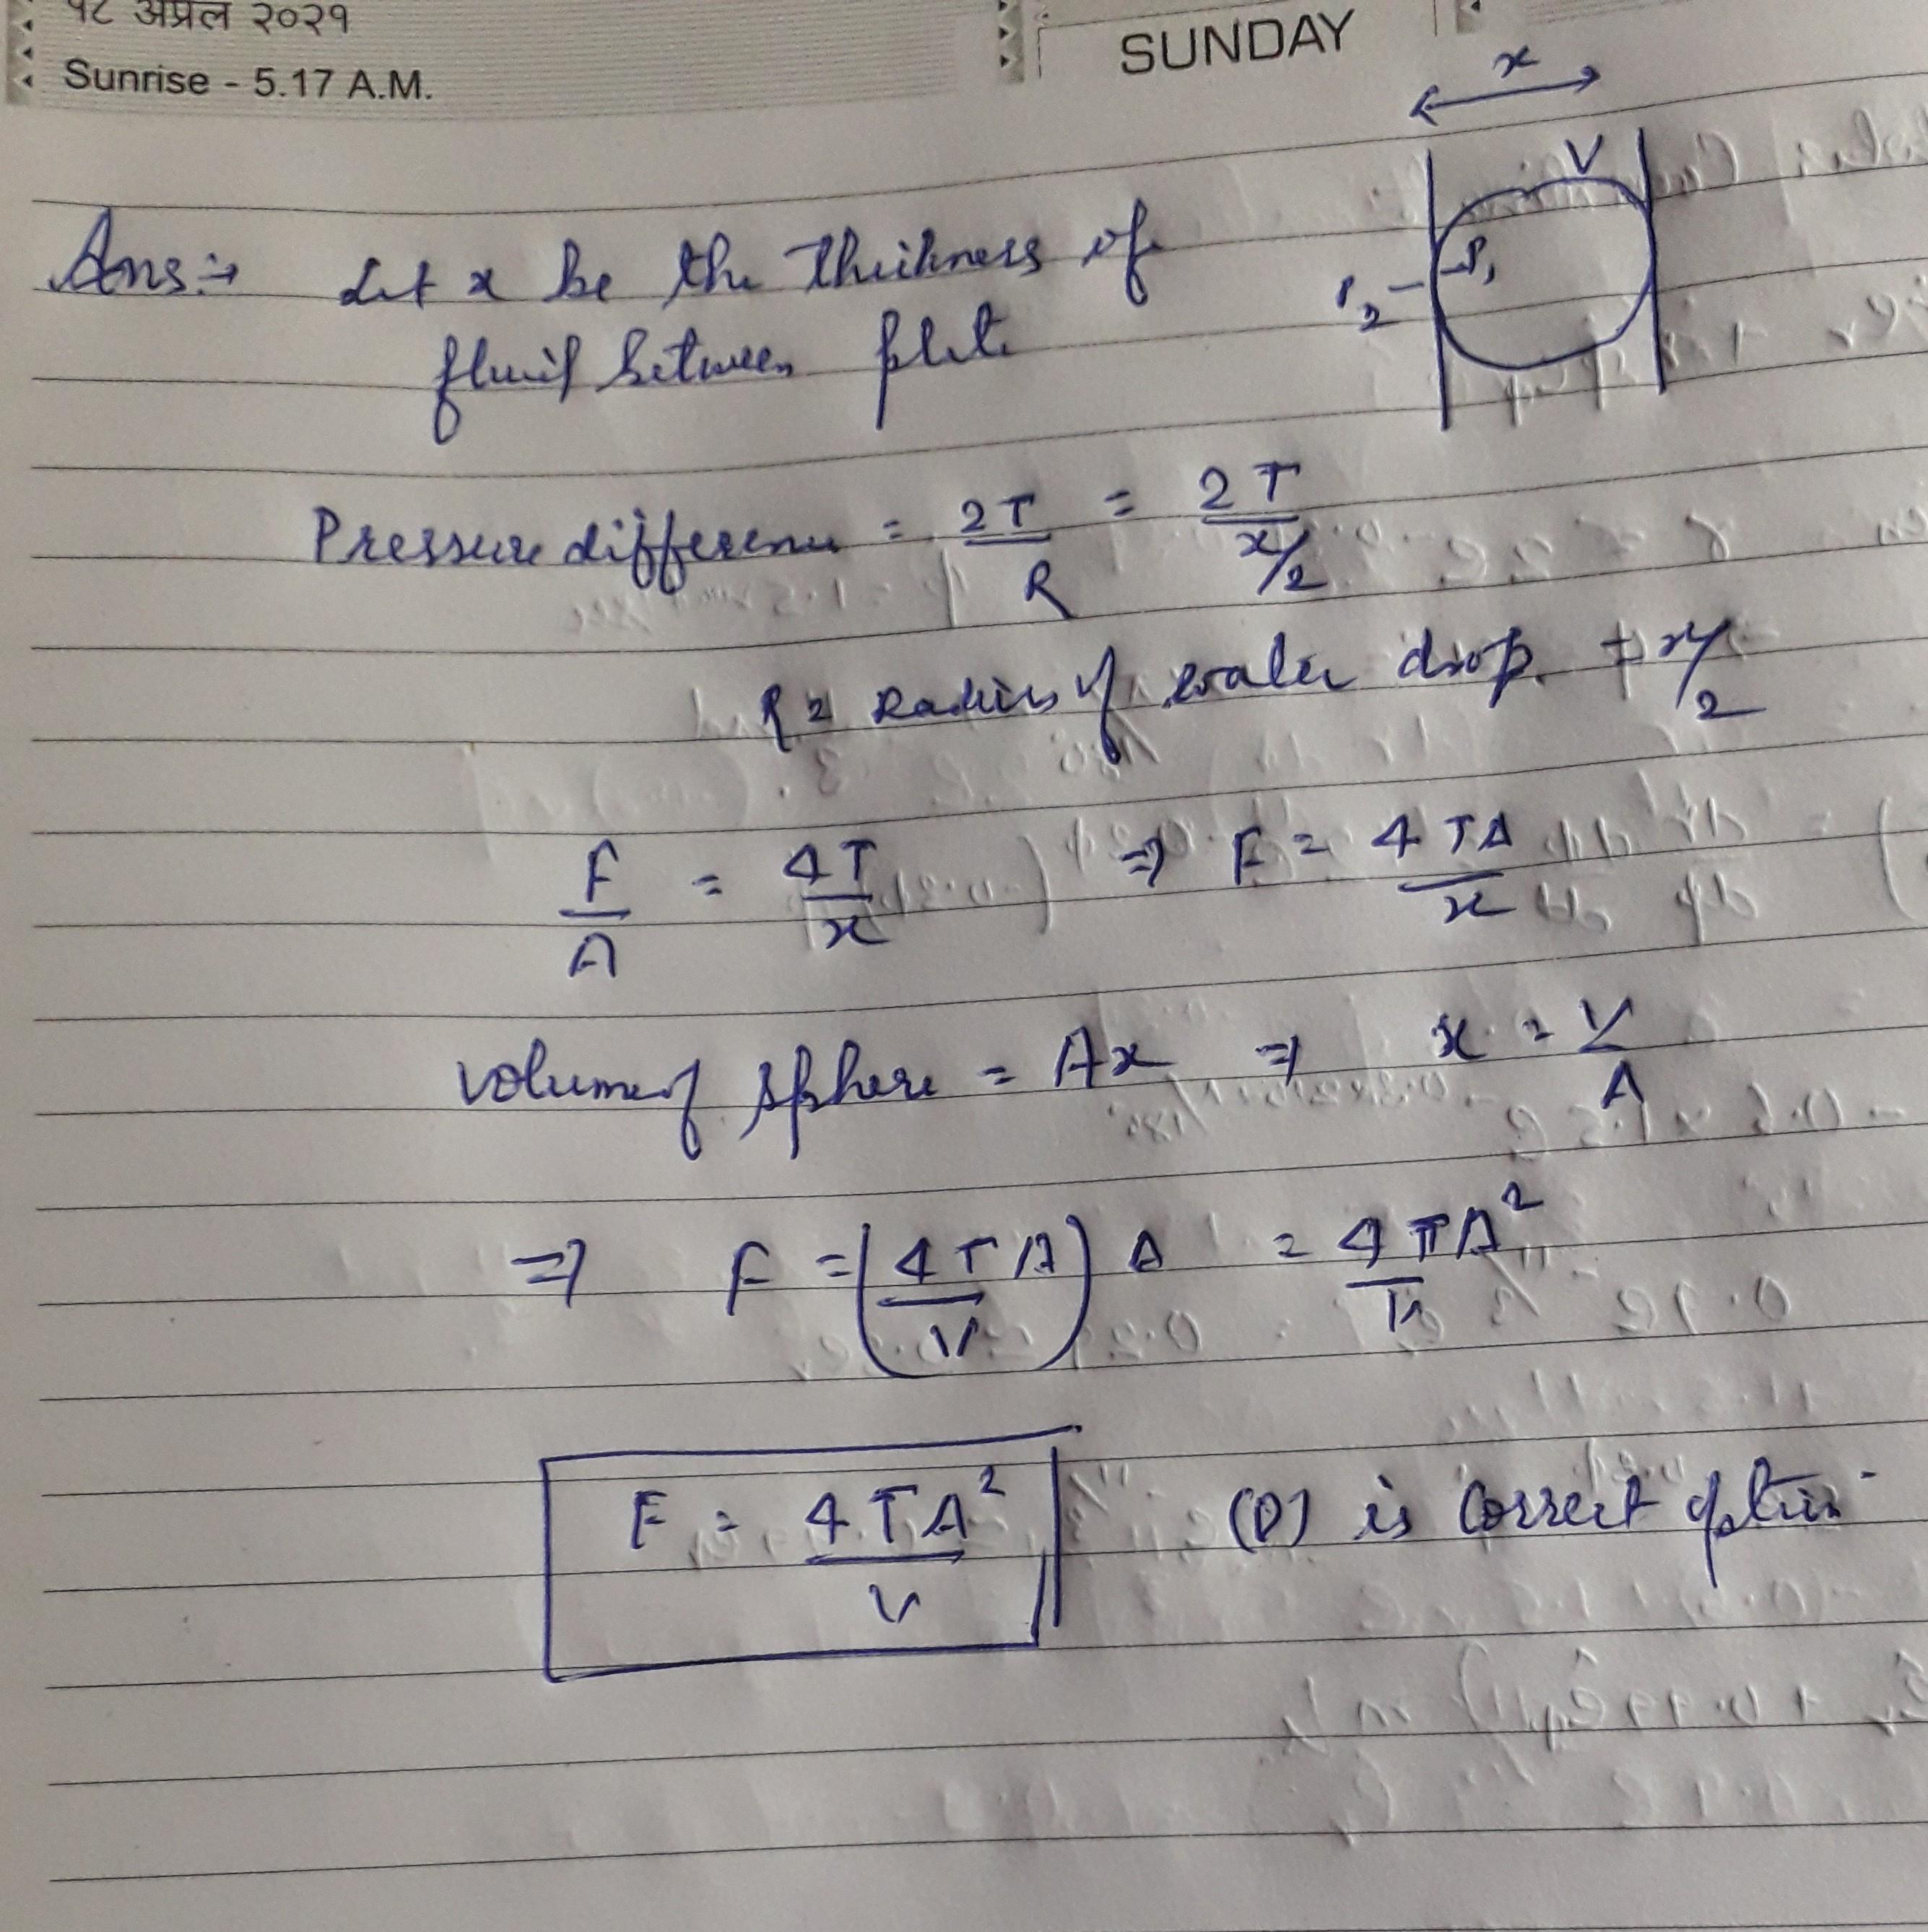 १८ अप्रैल २०२१
Sunrise - 5.17 A.M.
SUNDAY
x
V
P₁
P₂
Ans:→ Let x be the thickness of
fluid between plate
Pressure difference = 2T/R = 2T/(x/2)
R = Radius of water drop = x/2
F/A = 4T/x ⇒ F = 4TA/x
volume of sphere = Ax ⇒ x = V/A
⇒ F = (4TA/V) A = 4TA²/V
F = 4TA²/V (D) is correct option.